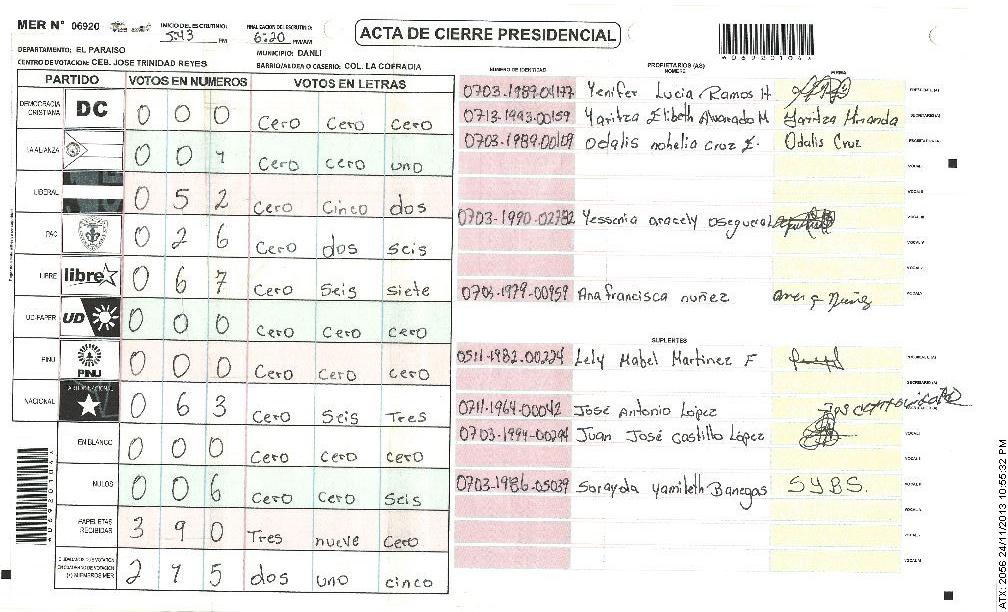 MER Nº 06920 INICIO DEL ESCRUTINIO: 5:43 PM FINALIZACION DEL ESCRUTINIO: 6:20 PM/AM
ACTA DE CIERRE PRESIDENCIAL
DEPARTAMENTO: EL PARAISO MUNICIPIO: DANLI
CENTRO DE VOTACION: CEB. JOSE TRINIDAD REYES BARRIO/ALDEA O CASERIO: COL. LA COFRADIA
PARTIDO VOTOS EN NUMEROS VOTOS EN LETRAS
DEMOCRACIA CRISTIANA DC 0 0 0 Cero Cero Cero
LA ALIANZA 0 0 1 Cero cero uno
LIBERAL 0 5 2 Cero Cinco dos
PAC 0 2 6 Cero dos seis
LIBRE libre 0 6 7 Cero Seis siete
UD-FAPER UD 0 0 0 Cero Cero Cero
PINU PINU 0 0 0 Cero Cero cero
NACIONAL 0 6 3 Cero Seis Tres
EN BLANCO 0 0 0 Cero Cero cero
NULOS 0 0 6 Cero Cero Seis
PAPELETAS RECIBIDAS 3 9 0 Tres nueve Cero
2 1 5 dos uno cinco
NUMERO DE IDENTIDAD PROPIETARIOS (AS) NOMBRE FIRMA
0703-1989-04177 Yenifer Lucia Ramos H
0713-1993-00159 Yaritza Elibeth Alvarado M Yaritza Miranda
0703-1989-00109 Odalis nohelia cruz E. Odalis Cruz
0703-1990-02732 Yessenia aracely oseguera
0703-1979-00959 Ana francisca nuñez
SUPLENTES
0511-1982-00224 Lely Mabel Martinez F
0711-1964-00042 José Antonio López
0703-1994-00294 Juan José Castillo López
0703-1986-05039 Sorayda Yamileth Banegas S.Y.B.S.
ATX: 2056 24/11/2013 10:55:32 PM